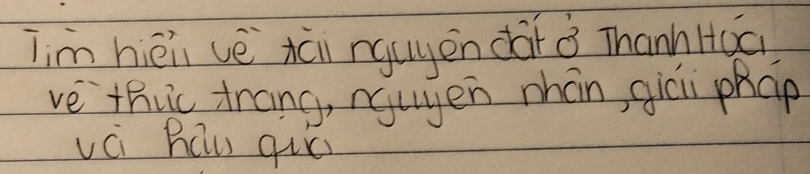 Tìm hiểu về tài nguyên đất ở Thanh Hóa
về thực trạng, nguyên nhân, giải pháp
và hậu quả